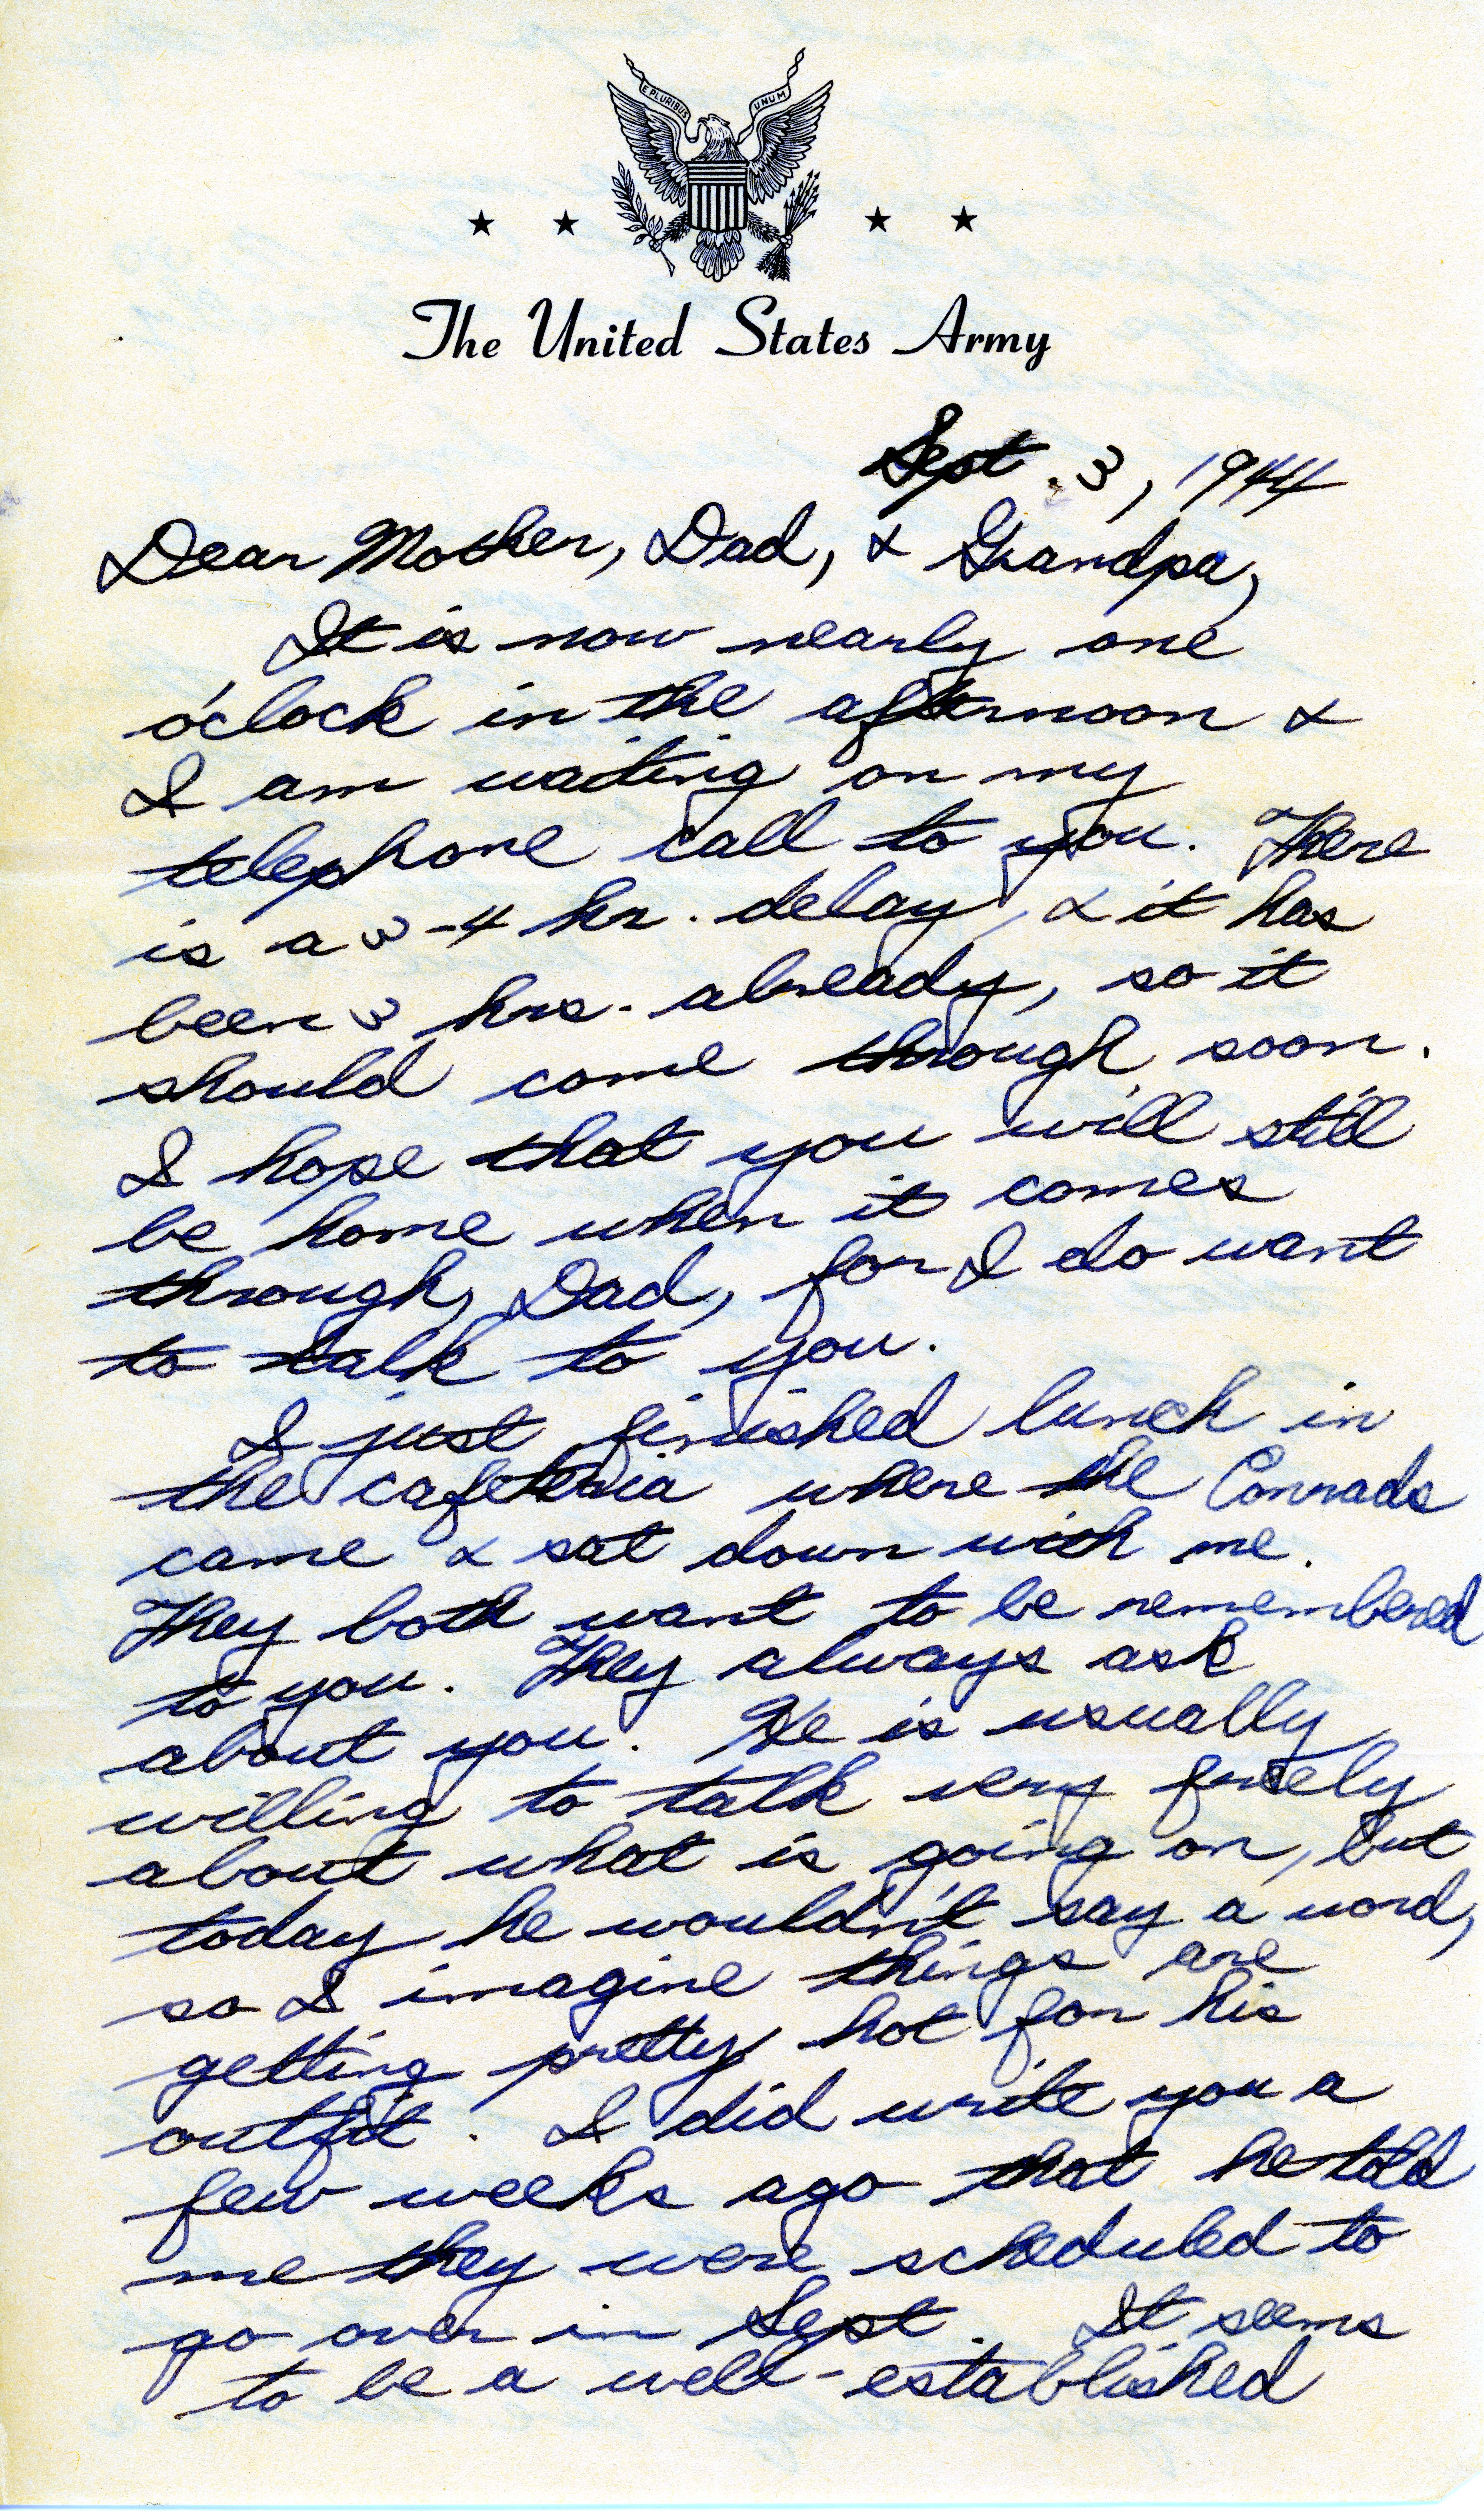 E PLURIBUS UNUM
The United States Army
Sept. 3, 1944
Dear Mother, Dad, & Grandpa,
It is now nearly one
o'clock in the afternoon &
I am waiting on my
telephone call to you. There
is a 3-4 hr. delay, & it has
been 3 hrs. already, so it
should come through soon.
I hope that you will still
be home when it comes
through, Dad, for I do want
to talk to you.
I just finished lunch in
the cafeteria where the Conrads
came & sat down with me.
They both want to be remembered
to you. They always ask
about you. He is usually
willing to talk very freely
about what is going on, but
today he wouldn't say a word,
so I imagine things are
getting pretty hot for his
outfit. I did write you a
few weeks ago that he told
me they were scheduled to
go over in Sept. It seems
to be a well-established